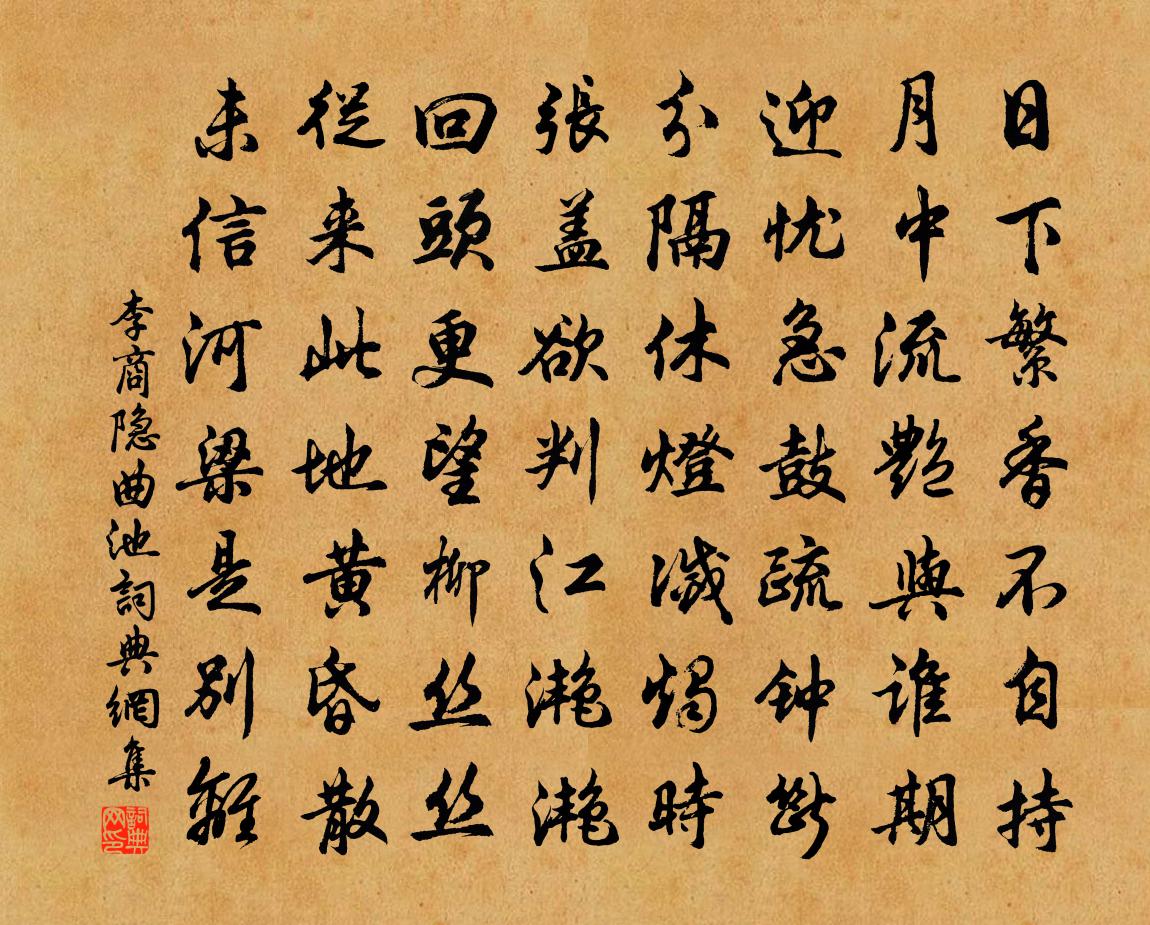 日下繁香不自持
月中流艷與誰期
迎忧急鼓疏钟斷
分隔休燈滅燭時
張盖欲判江滟滟
回頭更望柳丝丝
從来此地黄昏散
未信河梁是别離
李商隐曲池詞典網集
詞典网印